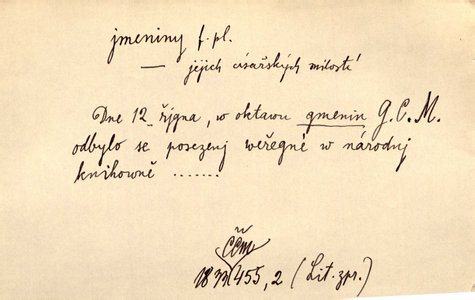 jmeniny f. pl.
— jejich císařských milostí
Dne 12. řjgna, w oktawu gmenin G. C. M.
odbylo se posezenj weřegné w národnj
knihowně .......
ČČM
18 455, 2 (Lit. zpr.)